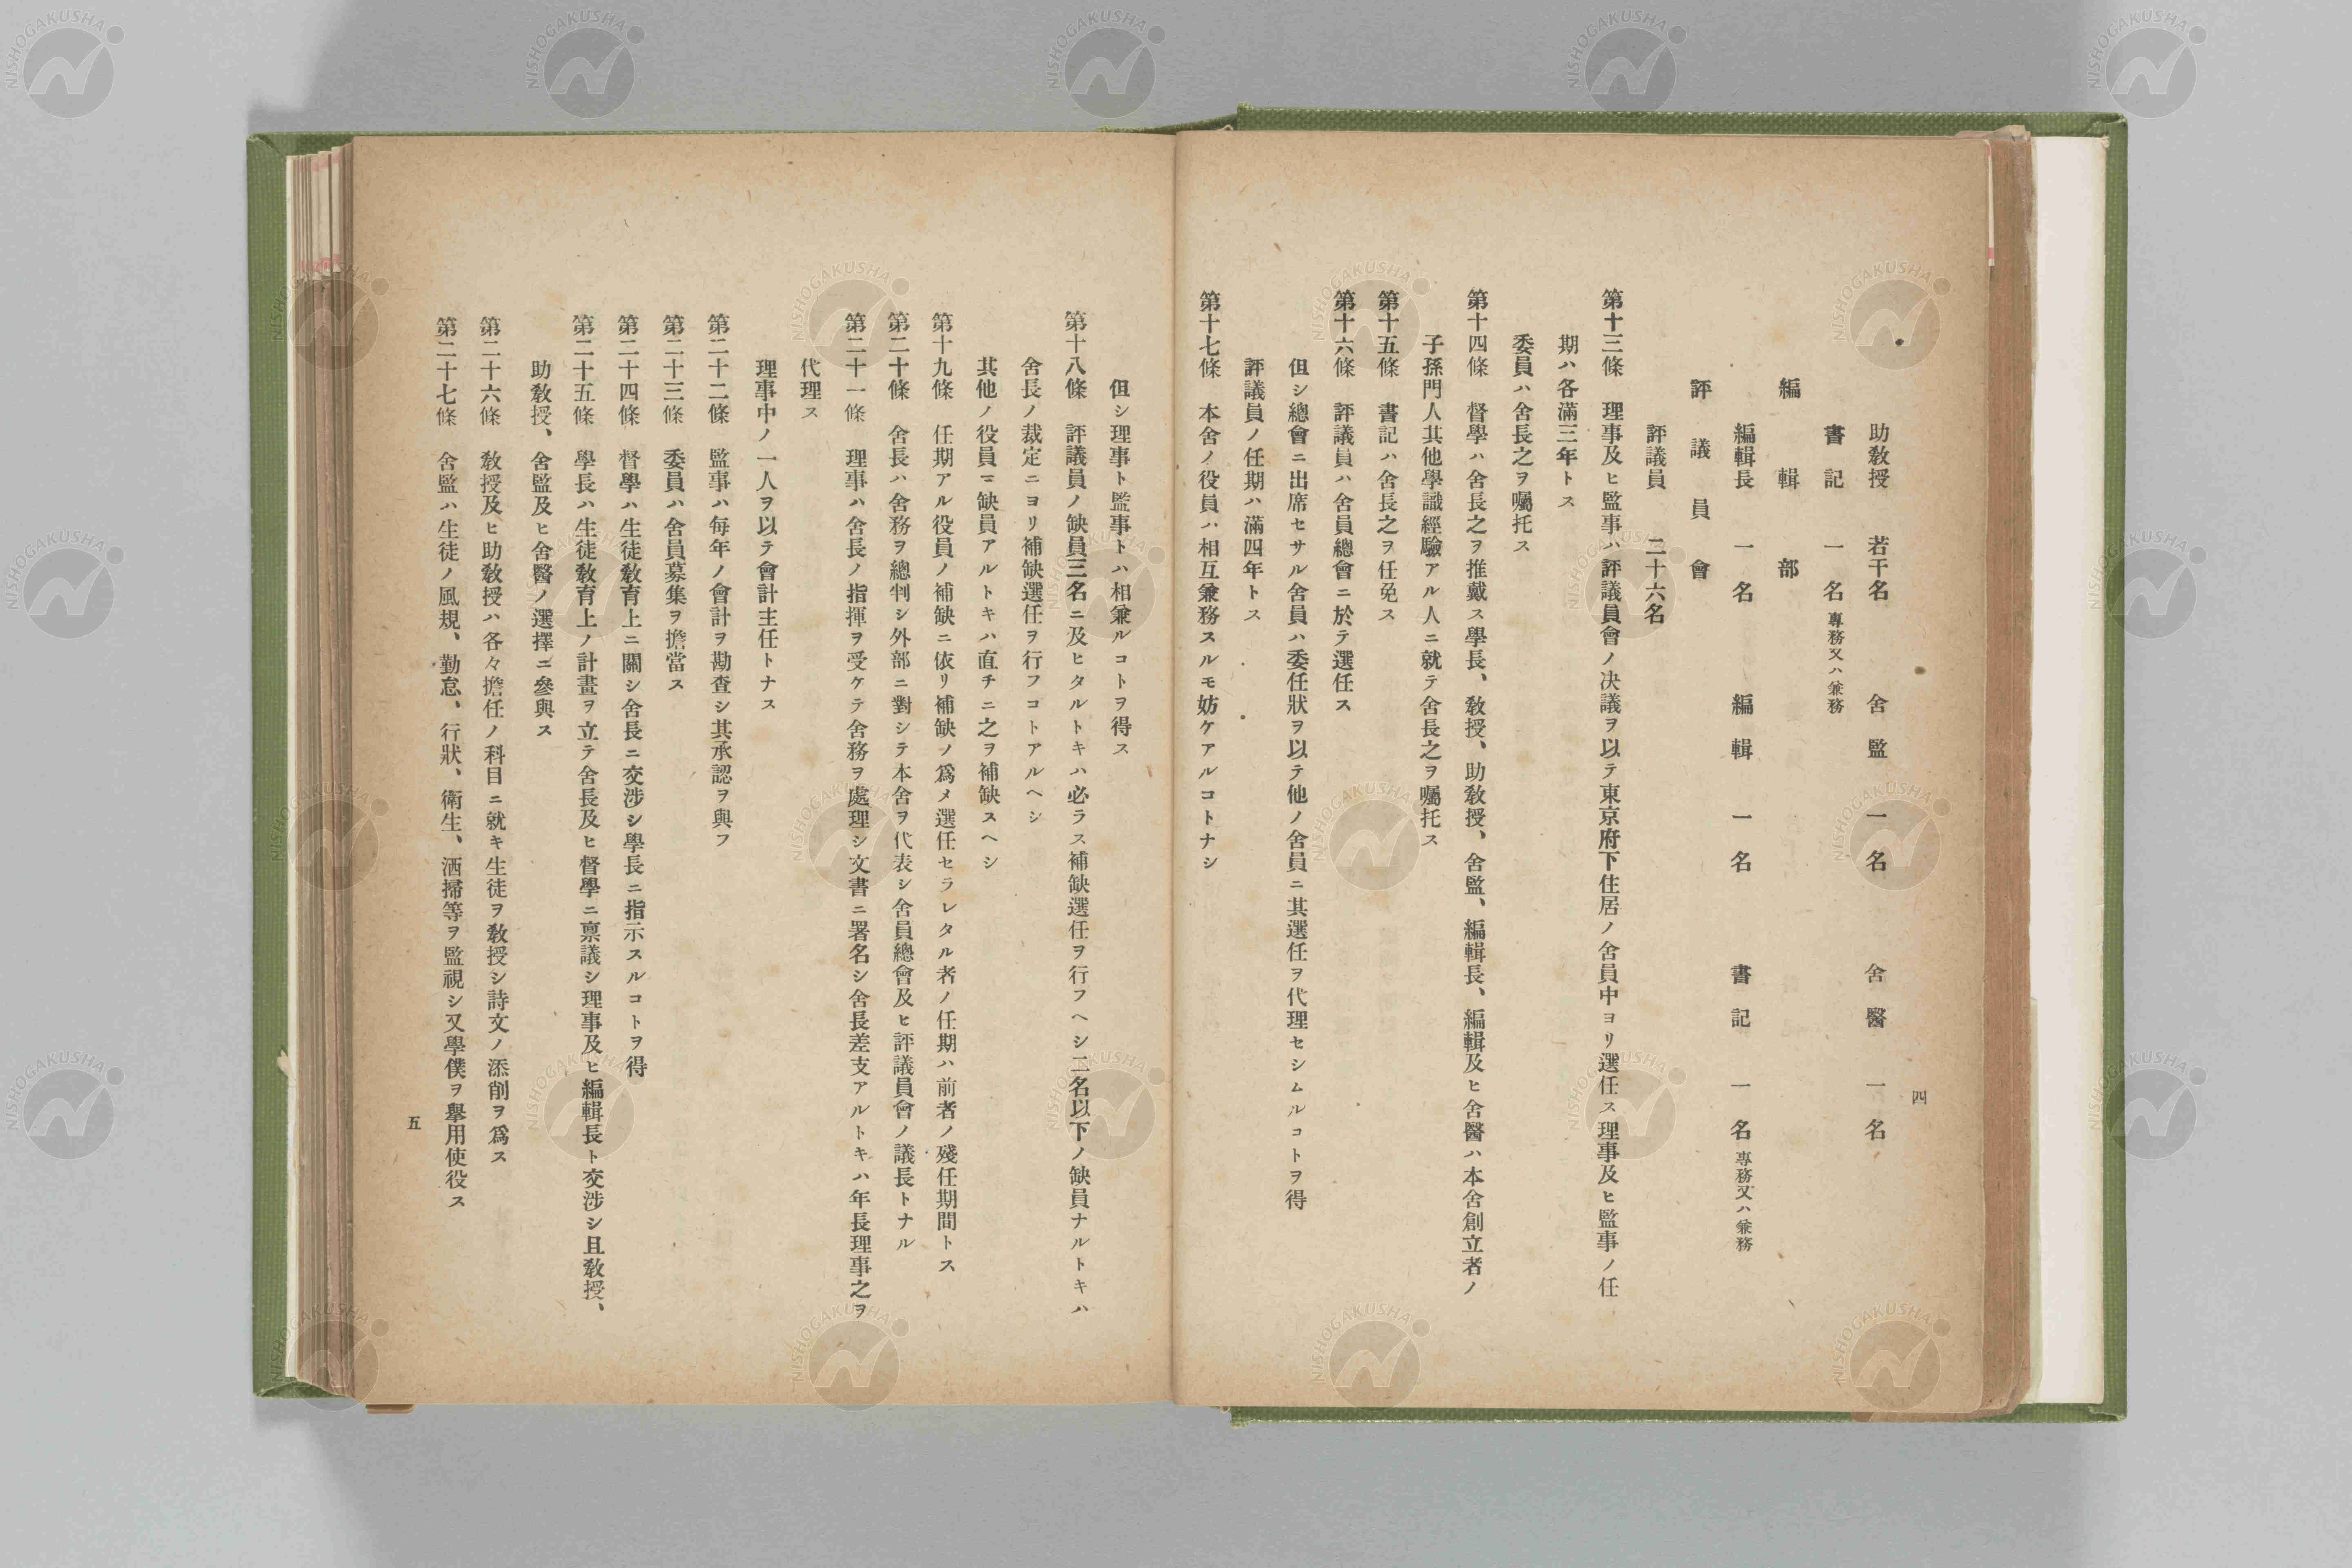 四
助敎授　若干名　舍監　一名　舍醫　一名
書記　一名 專務又ハ兼務
編輯部
編輯長　一名　編輯　一名　書記　一名 專務又ハ兼務
評議員會
評議員　二十六名
第十三條　理事及ヒ監事ハ評議員會ノ决議ヲ以テ東京府下住居ノ舍員中ヨリ選任ス理事及ヒ監事ノ任
期ハ各滿三年トス
委員ハ舍長之ヲ囑托ス
第十四條　督學ハ舍長之ヲ推戴ス學長、敎授、助敎授、舍監、編輯長、編輯及ヒ舍醫ハ本舍創立者ノ
子孫門人其他學識經驗アル人ニ就テ舍長之ヲ囑托ス
第十五條　書記ハ舍長之ヲ任免ス
第十六條　評議員ハ舍員總會ニ於テ選任ス
但シ總會ニ出席セサル舍員ハ委任狀ヲ以テ他ノ舍員ニ其選任ヲ代理セシムルコトヲ得
評議員ノ任期ハ滿四年トス
第十七條　本舍ノ役員ハ相互兼務スルモ妨ケアルコトナシ
但シ理事ト監事トハ相兼ルコトヲ得ス
第十八條　評議員ノ缺員三名ニ及ヒタルトキハ必ラス補缺選任ヲ行フヘシ二名以下ノ缺員ナルトキハ
舍長ノ裁定ニヨリ補缺選任ヲ行フコトアルヘシ
其他ノ役員ニ缺員アルトキハ直チニ之ヲ補缺スヘシ
第十九條　任期アル役員ノ補缺ニ依リ補缺ノ爲メ選任セラレタル者ノ任期ハ前者ノ殘任期間トス
第二十條　舍長ハ舍務ヲ總判シ外部ニ對シテ本舍ヲ代表シ舍員總會及ヒ評議員會ノ議長トナル
第二十一條　理事ハ舍長ノ指揮ヲ受ケテ舍務ヲ處理シ文書ニ署名シ舍長差支アルトキハ年長理事之ヲ
代理ス
理事中ノ一人ヲ以テ會計主任トナス
第二十二條　監事ハ每年ノ會計ヲ勘査シ其承認ヲ與フ
第二十三條　委員ハ舍員募集ヲ擔當ス
第二十四條　督學ハ生徒敎育上ニ關シ舍長ニ交涉シ學長ニ指示スルコトヲ得
第二十五條　學長ハ生徒敎育上ノ計畫ヲ立テ舍長及ヒ督學ニ禀議シ理事及ヒ編輯長ト交涉シ且敎授、
助敎授、舍監及ヒ舍醫ノ選擇ニ參與ス
第二十六條　敎授及ヒ助敎授ハ各々擔任ノ科目ニ就キ生徒ヲ敎授シ詩文ノ添削ヲ爲ス
第二十七條　舍監ハ生徒ノ風規、勤怠、行狀、衛生、洒掃等ヲ監視シ又學僕ヲ擧用使役ス
五
NISHOGAKUSHA